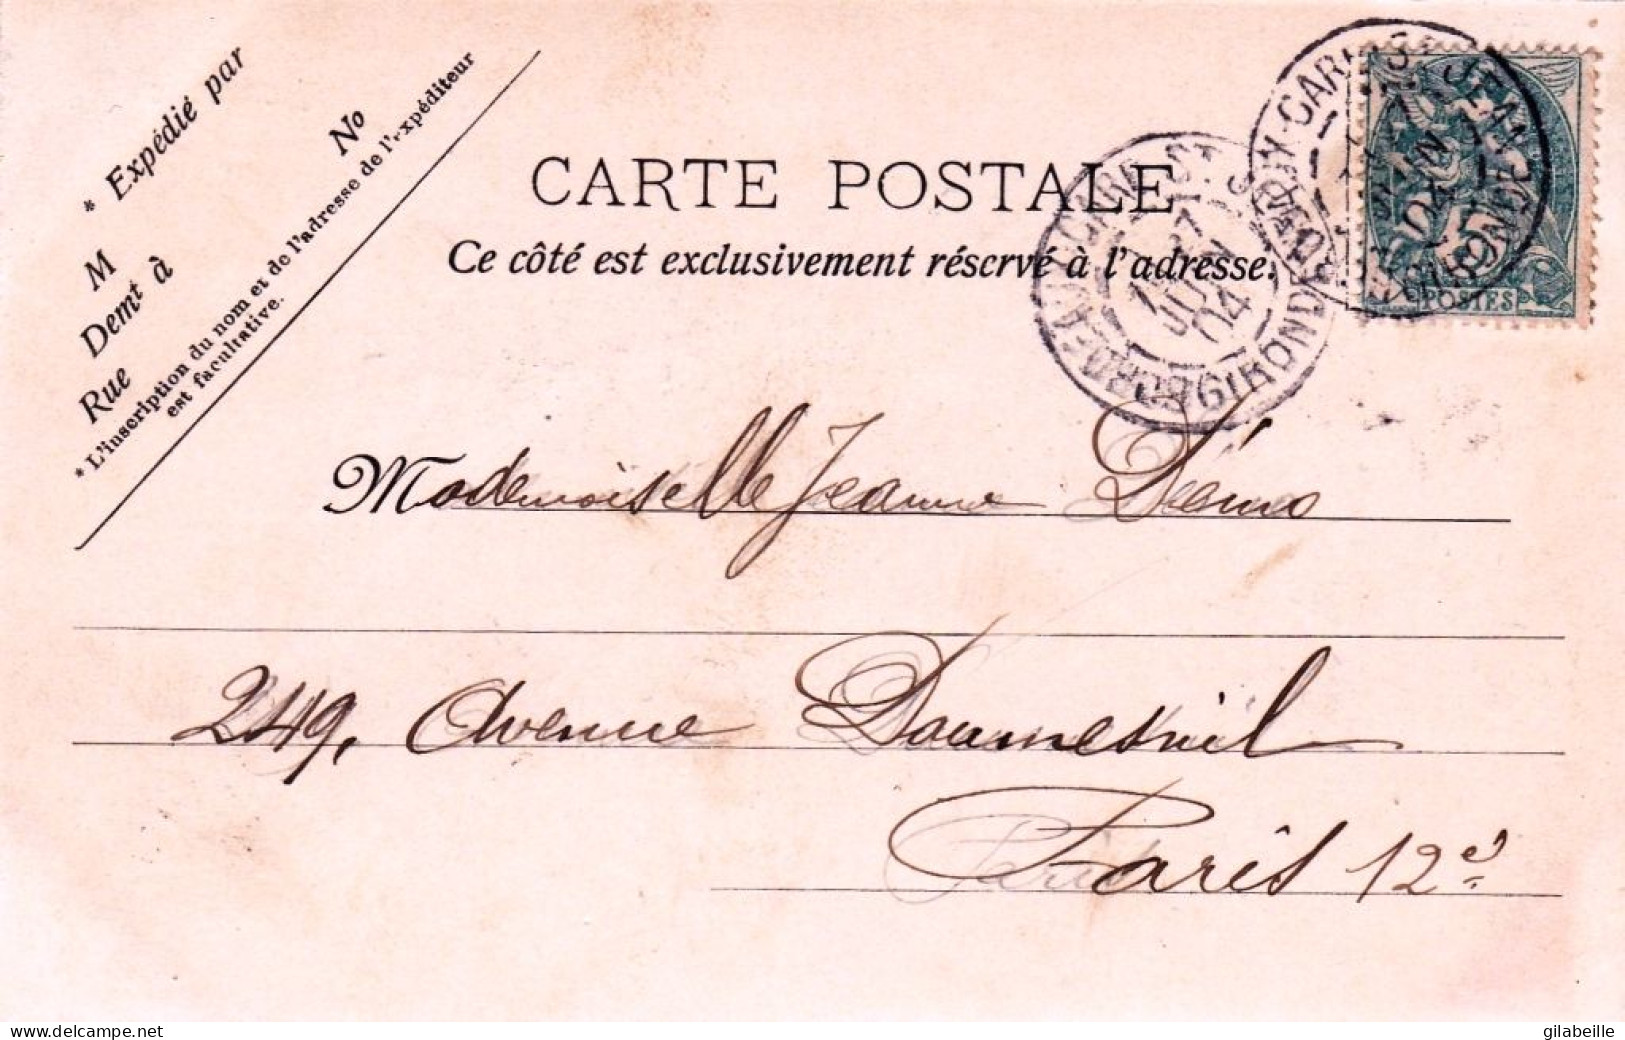 * Expédié par
No
M
Demt à
Rue
* L'inscription du nom et de l'adresse de l'expéditeur
est facultative.
CARTE POSTALE
Ce côté est exclusivement réservé à l'adresse.
JUIN
04
GIRONDE
POSTES
Mademoiselle Jeanne
249, Avenue Daumesnil
Paris 12e
delcampe.net
gilabeille